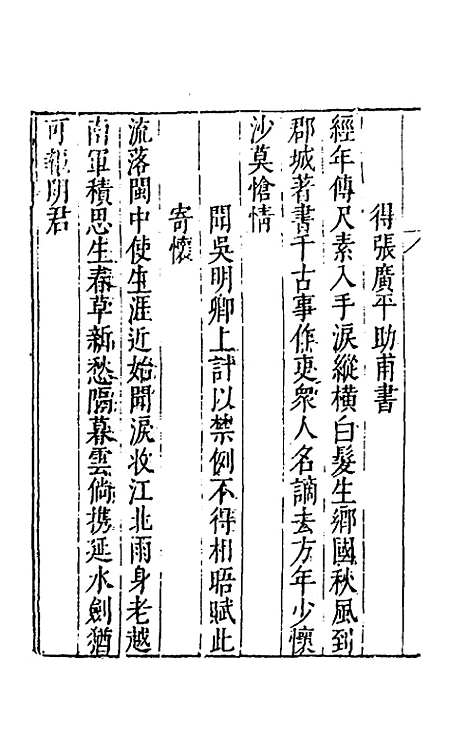 得張廣平助甫書
經年傳尺素入手淚縱橫白髮生鄉國秋風到
郡城著書千古事作吏衆人名謫去方年少懷
沙莫愴情
聞吳明卿上計以禁例不得相晤賦此
寄懷
流落閩中使生涯近始聞淚收江北雨身老越
南軍積思生春草新愁隔暮雲倘携延水劍猶
可報明君